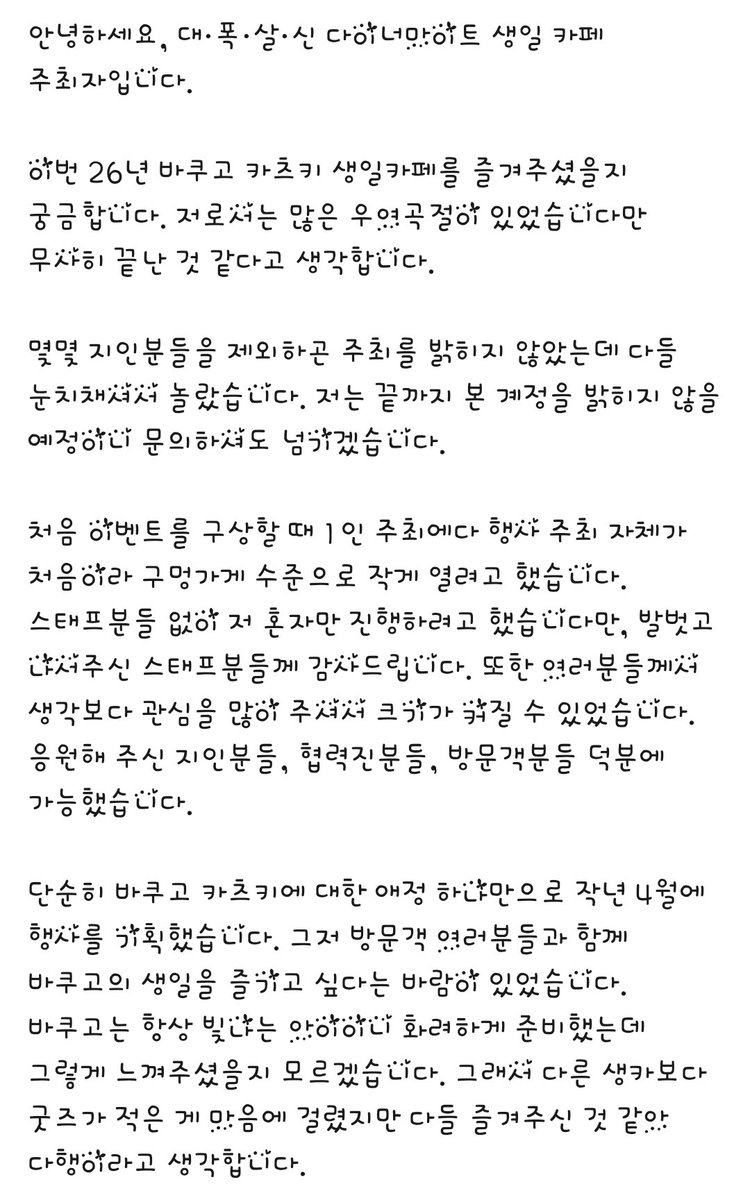 안녕하세요, 대·폭·살·신 다이너마이트 생일 카페
주최자입니다.
이번 26년 바쿠고 카츠키 생일카페를 즐겨주셨을지
궁금합니다. 저로서는 많은 우여곡절이 있었습니다만
무사히 끝난 것 같다고 생각합니다.
몇몇 지인분들을 제외하곤 주최를 밝히지 않았는데 다들
눈치채셔서 놀랐습니다. 저는 끝까지 본 계정을 밝히지 않을
예정이니 문의하셔도 넘기겠습니다.
처음 이벤트를 구상할 때 1인 주최에다 행사 주최 자체가
처음이라 구멍가게 수준으로 작게 열려고 했습니다.
스태프분들 없이 저 혼자만 진행하려고 했습니다만, 발벗고
나서주신 스태프분들께 감사드립니다. 또한 여러분들께서
생각보다 관심을 많이 주셔서 크기가 커질 수 있었습니다.
응원해 주신 지인분들, 협력진분들, 방문객분들 덕분에
가능했습니다.
단순히 바쿠고 카츠키에 대한 애정 하나만으로 작년 4월에
행사를 기획했습니다. 그저 방문객 여러분들과 함께
바쿠고의 생일을 즐기고 싶다는 바람이 있었습니다.
바쿠고는 항상 빛나는 아이이니 화려하게 준비했는데
그렇게 느껴주셨을지 모르겠습니다. 그래서 다른 생카보다
굿즈가 적은 게 마음에 걸렸지만 다들 즐겨주신 것 같아
다행이라고 생각합니다.